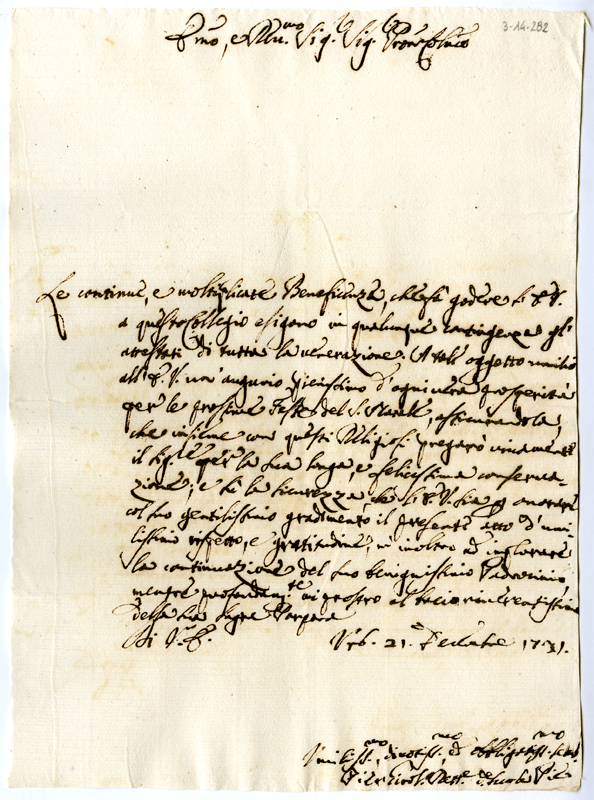 3-14-282
E.mo, e R.mo Sig. Sig. Pron Col.mo
Le continue, e moltiplicate Beneficenze, che fà godere l'E. V.
a questo Collegio esigono in qualunque contingenza gl'
attestati di tutta la venerazione. A tall' oggetto umilio
all' E. V. un' augurio felicissimo d'ogni vera prosperità
per le prossime Feste del S. Natale, assicurandola,
che insieme con questi Religiosi pregarò vivamente
il Sig.re per la sua longa, e felicissima conserva-
zione; e la sicurezza, che l'E. V. sia p onorare
col suo gentilissimo gradimento il presente atto d'umi-
lissimo rispetto, e gratitudine, m' inoltro ad implorare
la continuazione del suo benignissimo Padrocinio,
mentre profondam.te mi prostro al bacio riverentissimo
della Sua Sagra Porpora
Di V. E. Urb. 21. Decembre 1731.
Umiliss.mo, divotiss.mo, ed obbligatiss.mo